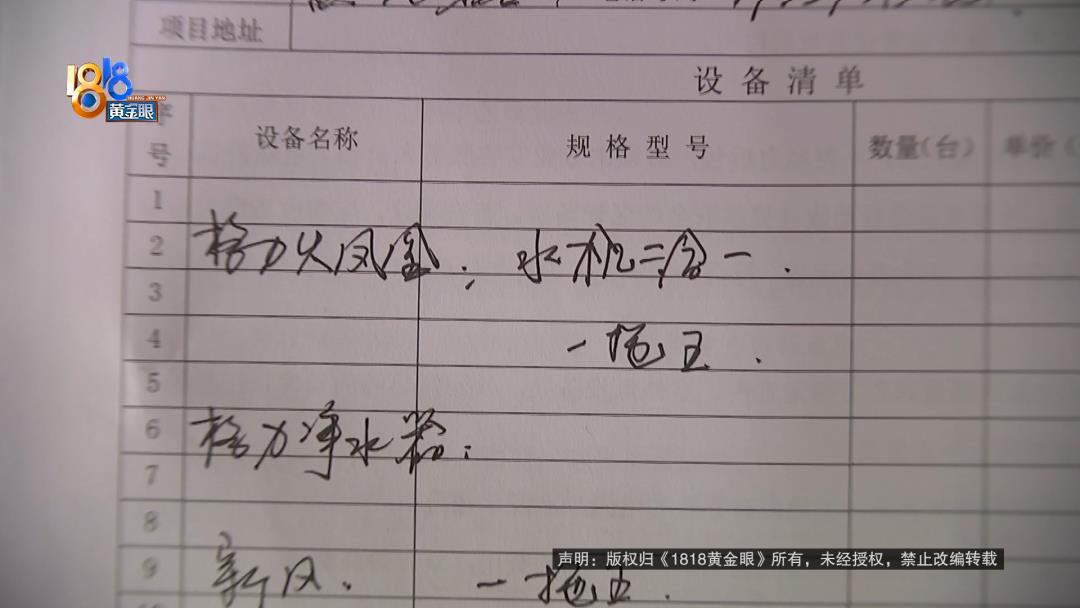 项目地址
设备清单
1818
HUANG JIN YAN
黄金眼
序号 设备名称 规格型号 数量(台) 单价(
1
2 格力火凤凰; 水机二合一.
3
4 一拖五.
5
6 格力净水器:
7
8
9 新风. 一拖五.
声明：版权归《1818黄金眼》所有，未经授权，禁止改编转载